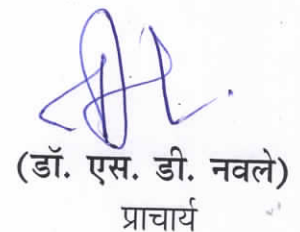 (डॉ. एस. डी. नवले)
प्राचार्य